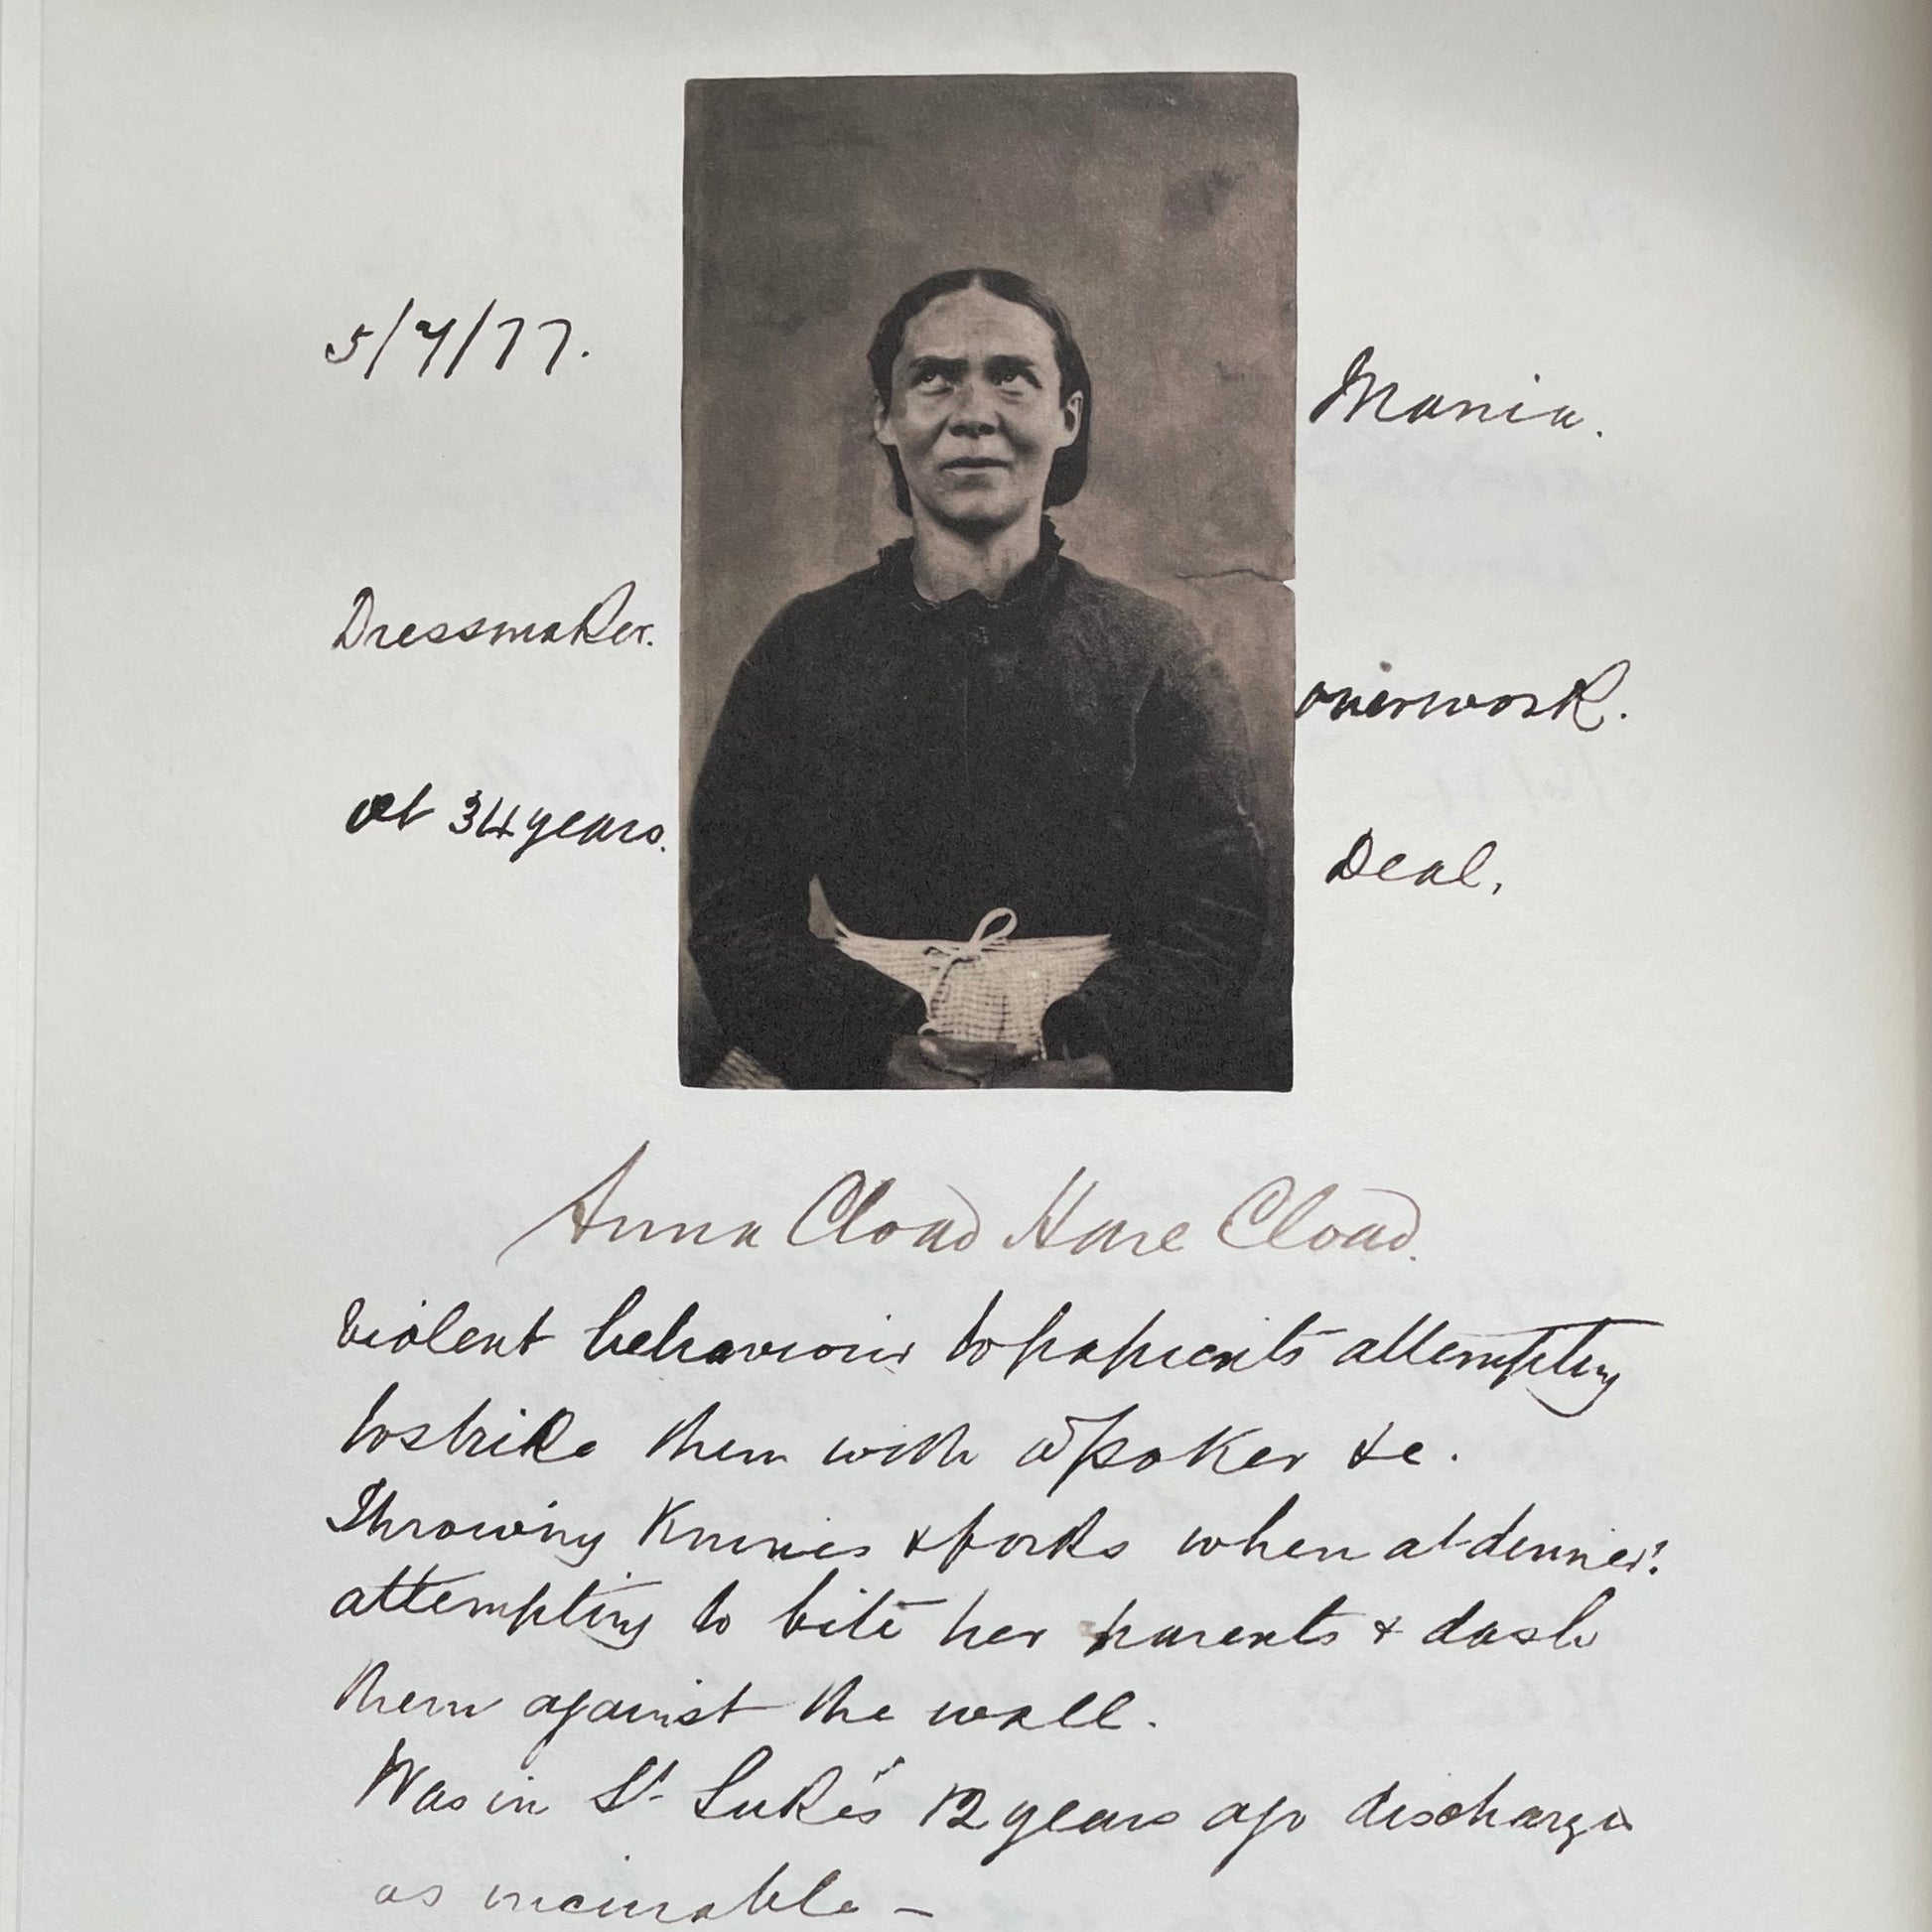 5/7/77.
Mania.
Dressmaker.
overwork.
æt 34 years.
Deal.
Anna Cload Hare Cload.
Violent behaviour to parents attempting
to strike them with a poker &c.
Throwing Knives & forks when at dinner!
attempting to bite her parents & dash
them against the wall.
Was in St Luke's 12 years ago discharged
as incurable –